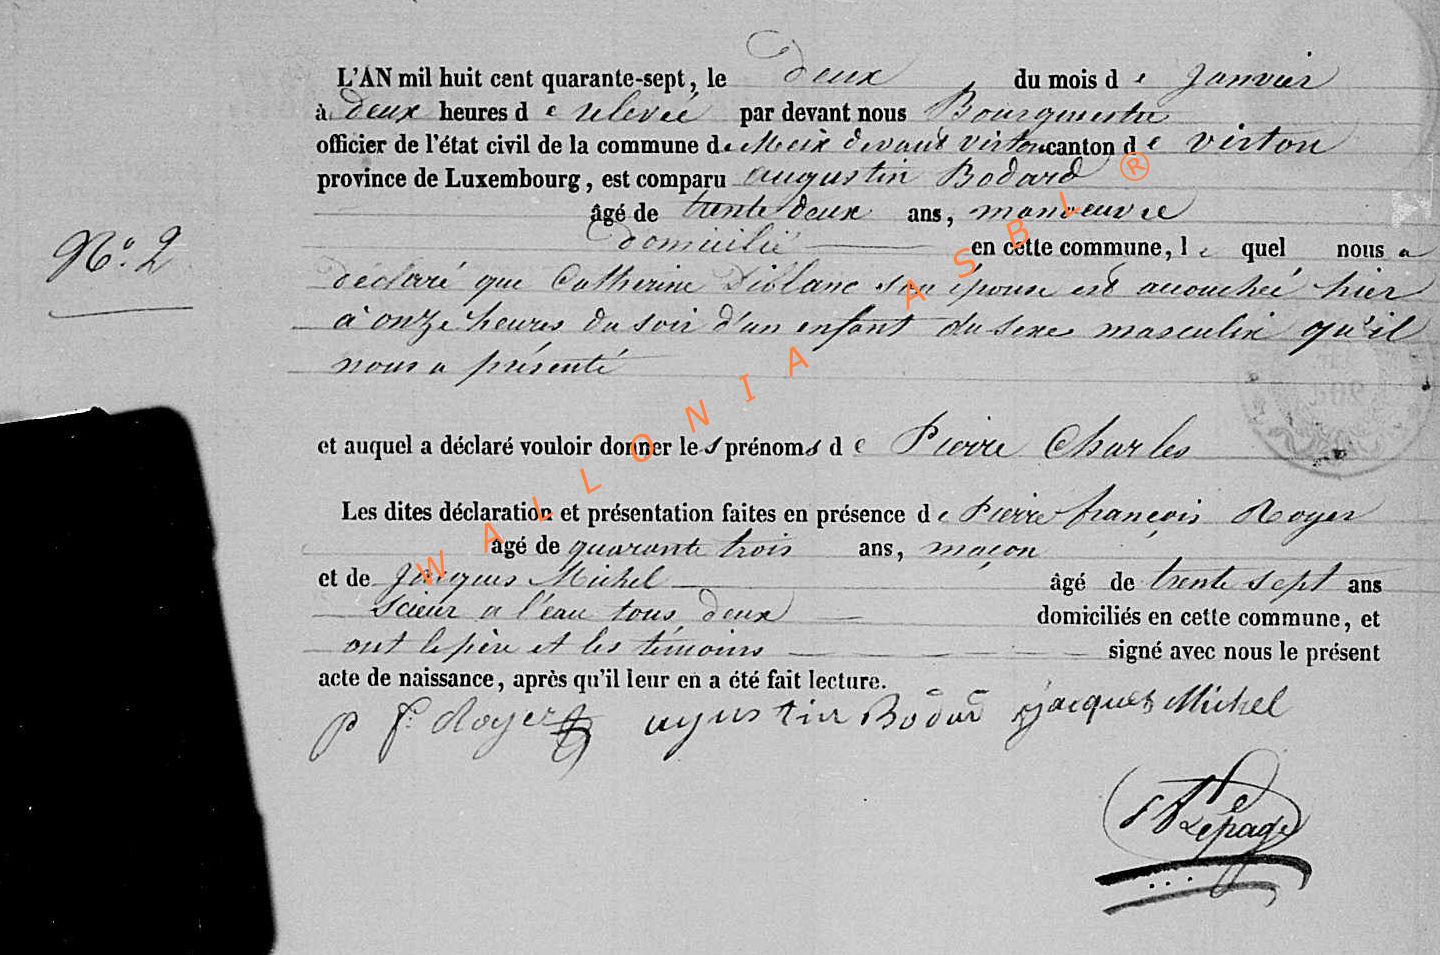 L'AN mil huit cent quarante-sept, le deux du mois de Janvier
à deux heures de relevée par devant nous Bourgmestre
officier de l'état civil de la commune de Meix devant virton canton de virton
province de Luxembourg, est comparu augustin Bodard
âgé de trente deux ans, manoeuvre
domicilié en cette commune, le quel nous a
N°. 2
déclaré que Catherine Diblanc son épouse est acouchée hier
à onze heures du soir d'un enfant du sexe masculin qu'il
nous a présenté
et auquel a déclaré vouloir donner les prénoms de Pierre Charles
Les dites déclaration et présentation faites en présence de Pierre françois Royer
agé de quarante trois ans, maçon
et de Jacques Michel âgé de trente sept ans
Scieur a l'eau tous deux domiciliés en cette commune, et
ont le père et les témoins signé avec nous le présent
acte de naissance, après qu'il leur en a été fait lecture.
p f. Royer augustin Bodard jacques Michel
Lepage
WALLONIA ASBL ®